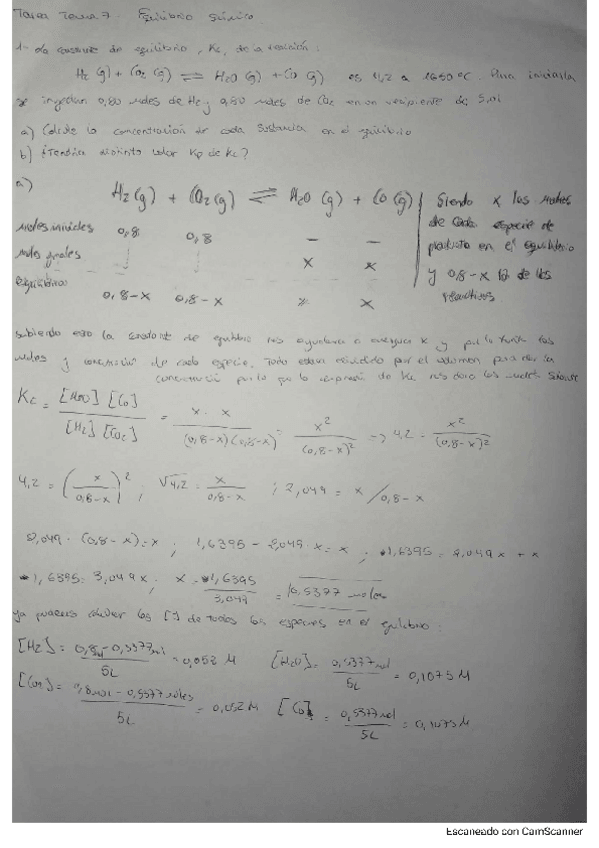 Tarea Tema 7. Equilibrio Químico.
1- La constante de equilibrio, Kc, de la reacción:
H2 (g) + CO2 (g) ⇌ H2O (g) + CO (g) es 4,2 a 1650 ºC. Para iniciarla
se inyectan 0,80 moles de H2 y 0,80 moles de CO2 en un recipiente de 5,0 l
a) Calcule la concentración de cada sustancia en el equilibrio
b) ¿Tendrá distinto valor Kp de Kc?
a)
H2 (g) + CO2 (g) ⇌ H2O (g) + CO (g)
Siendo x los moles
de cada especie de
producto en el equilibrio
y 0,8-x la de los
reactivos.
moles iniciales 0,8 0,8 - -
moles x x
Equilibrio 0,8-x 0,8-x x x
sabiendo eso la constante de equilibrio nos ayudara a averiguar x y por lo tanto los
moles y concentración de cada especie. Todo estara dividido por el volumen para dar la
concentración por lo que la expresión de Kc nos dara
Kc = [H2O] [CO] / [H2] [CO2] = x · x / (0,8-x)(0,8-x) = x² / (0,8-x)² => 4,2 = x² / (0,8-x)²
4,2 = (x / 0,8-x)² ; √4,2 = x / 0,8-x ; 2,049 = x / 0,8-x
2,049 · (0,8-x) = x ; 1,6395 - 2,049 x = x ; 1,6395 = 2,049x + x
1,6395 = 3,049x ; x = 1,6395 / 3,049 = 0,5377 moles
ya podemos las [ ] de todas las especies en el equilibrio:
[H2] = 0,8 mol - 0,5377 mol / 5L = 0,052 M [H2O] = 0,5377 mol / 5L = 0,1075 M
[CO2] = 0,8 mol - 0,5377 moles / 5L = 0,052 M [CO] = 0,5377 mol / 5L = 0,1075 M
Escaneado con CamScanner